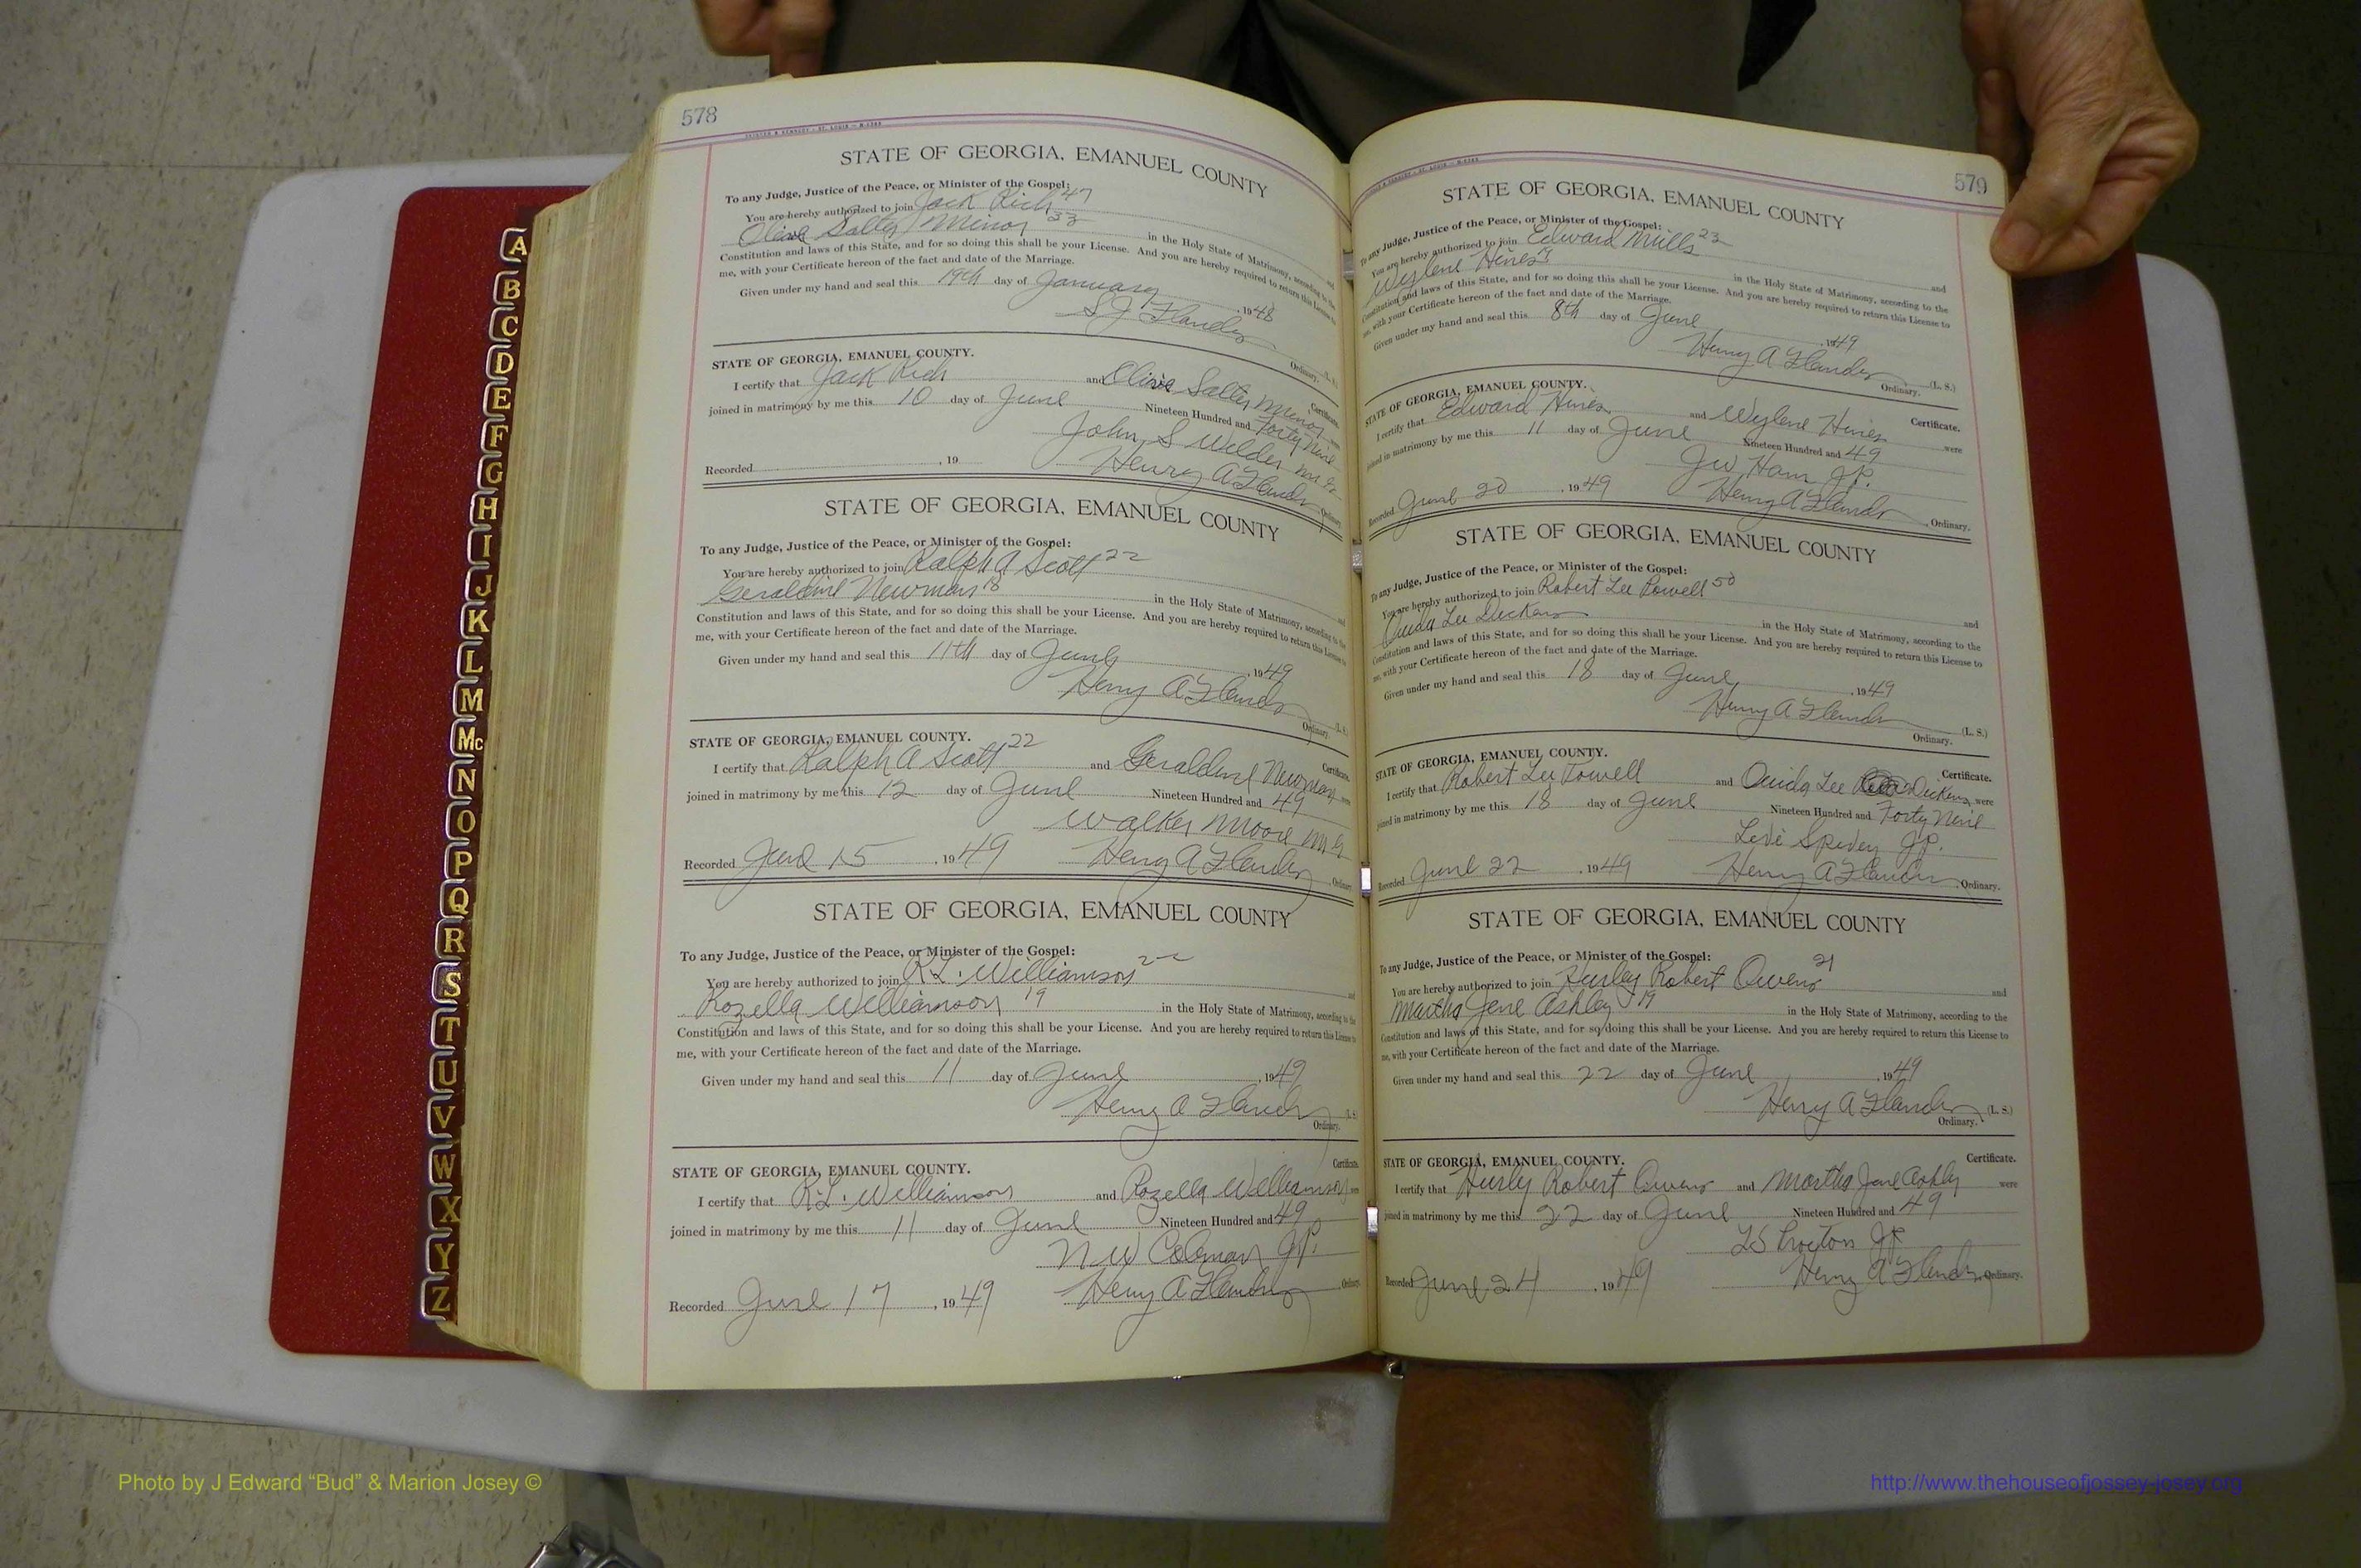 578
STATE OF GEORGIA, EMANUEL COUNTY
To any Judge, Justice of the Peace, or Minister of the Gospel:
You are hereby authorized to join Jack Rich 47 and
Olive Salter Minor 33 in the Holy State of Matrimony, according to the
Constitution and laws of this State, and for so doing this shall be your License. And you are hereby required to return this License to
me, with your Certificate hereon of the fact and date of the Marriage.
Given under my hand and seal this 19th day of January, 1948
S J Flanders (L. S.)
Ordinary.
STATE OF GEORGIA, EMANUEL COUNTY. Certificate.
I certify that Jack Rich and Olive Salter Minor were
joined in matrimony by me this 10 day of June Nineteen Hundred and Forty Nine
John S Wilder
Recorded , 19 Henry A Flanders Ordinary.
STATE OF GEORGIA, EMANUEL COUNTY
To any Judge, Justice of the Peace, or Minister of the Gospel:
You are hereby authorized to join Ralph A Scott 22 and
Geraldine Newman 18 in the Holy State of Matrimony, according to the
Constitution and laws of this State, and for so doing this shall be your License. And you are hereby required to return this License to
me, with your Certificate hereon of the fact and date of the Marriage.
Given under my hand and seal this 11th day of June, 1949
Henry A Flanders (L. S.)
Ordinary.
STATE OF GEORGIA, EMANUEL COUNTY. Certificate.
I certify that Ralph A Scott 22 and Geraldine Newman were
joined in matrimony by me this 12 day of June Nineteen Hundred and 49
Walker Moore M G
Recorded June 15, 1949 Henry A Flanders Ordinary.
STATE OF GEORGIA, EMANUEL COUNTY
To any Judge, Justice of the Peace, or Minister of the Gospel:
You are hereby authorized to join R.L. Williamson 22 and
Rozella Williamson 19 in the Holy State of Matrimony, according to the
Constitution and laws of this State, and for so doing this shall be your License. And you are hereby required to return this License to
me, with your Certificate hereon of the fact and date of the Marriage.
Given under my hand and seal this 11 day of June, 1949
Henry A Flanders (L. S.)
Ordinary.
STATE OF GEORGIA, EMANUEL COUNTY. Certificate.
I certify that R.L. Williamson and Rozella Williamson were
joined in matrimony by me this 11 day of June Nineteen Hundred and 49
N W Coleman J.P.
Recorded June 17, 1949 Henry A Flanders Ordinary.
579
STATE OF GEORGIA, EMANUEL COUNTY
To any Judge, Justice of the Peace, or Minister of the Gospel:
You are hereby authorized to join Edward Mills 23 and
Wylene Hines in the Holy State of Matrimony, according to the
Constitution and laws of this State, and for so doing this shall be your License. And you are hereby required to return this License to
me, with your Certificate hereon of the fact and date of the Marriage.
Given under my hand and seal this 8th day of June, 1949
Henry A Flanders (L. S.)
Ordinary.
STATE OF GEORGIA, EMANUEL COUNTY. Certificate.
I certify that Edward Hines and Wylene Hines were
joined in matrimony by me this 11 day of June Nineteen Hundred and 49
J W Ham J.P.
Recorded June 20, 1949 Henry A Flanders, Ordinary.
STATE OF GEORGIA, EMANUEL COUNTY
To any Judge, Justice of the Peace, or Minister of the Gospel:
You are hereby authorized to join Robert Lee Powell 50 and
Ouida Lee Dickens in the Holy State of Matrimony, according to the
Constitution and laws of this State, and for so doing this shall be your License. And you are hereby required to return this License to
me, with your Certificate hereon of the fact and date of the Marriage.
Given under my hand and seal this 18 day of June, 1949
Henry A Flanders (L. S.)
Ordinary.
STATE OF GEORGIA, EMANUEL COUNTY. Certificate.
I certify that Robert Lee Powell and Ouida Lee Dickens were
joined in matrimony by me this 18 day of June Nineteen Hundred and Forty Nine
Levi Spivey J.P.
Recorded June 22, 1949 Henry A Flanders, Ordinary.
STATE OF GEORGIA, EMANUEL COUNTY
To any Judge, Justice of the Peace, or Minister of the Gospel:
You are hereby authorized to join Hurley Robert Owens 21 and
Martha Jene Ashley 19 in the Holy State of Matrimony, according to the
Constitution and laws of this State, and for so doing this shall be your License. And you are hereby required to return this License to
me, with your Certificate hereon of the fact and date of the Marriage.
Given under my hand and seal this 22 day of June, 1949
Henry A Flanders (L. S.)
Ordinary.
STATE OF GEORGIA, EMANUEL COUNTY. Certificate.
I certify that Hurley Robert Owens and Martha Jene Ashley were
joined in matrimony by me this 22 day of June Nineteen Hundred and 49
J.P.
Recorded June 24, 1949 Henry A Flanders, Ordinary.
A
B
C
D
E
F
G
H
I
J
K
L
M
Mc
N
O
P
Q
R
S
T
U
V
W
X
Y
Z
Photo by J Edward “Bud” & Marion Josey ©
http://www.thehouseofjossey-josey.org